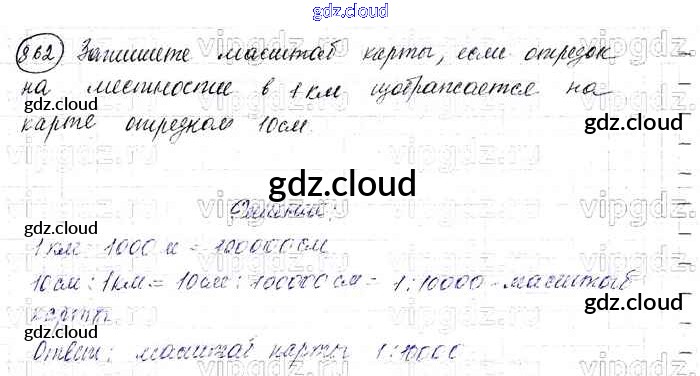 gdz.cloud
862 Запишите масштаб карты, если отрезок
на местности в 1 км изображается на
gdz.cloud
карте отрезком 10см.
gdz.cloud
gdz.cloud
Решение:
1 км = 1000 м = 100000 см
10см : 1км = 10см : 100000 см = 1 : 10000 - масштаб
карты
gdz.cloud
gdz.cloud
Ответ: масштаб карты 1 : 10000